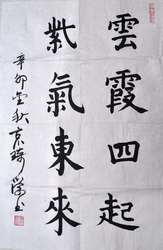 雲霞四起
紫氣東來
辛卯